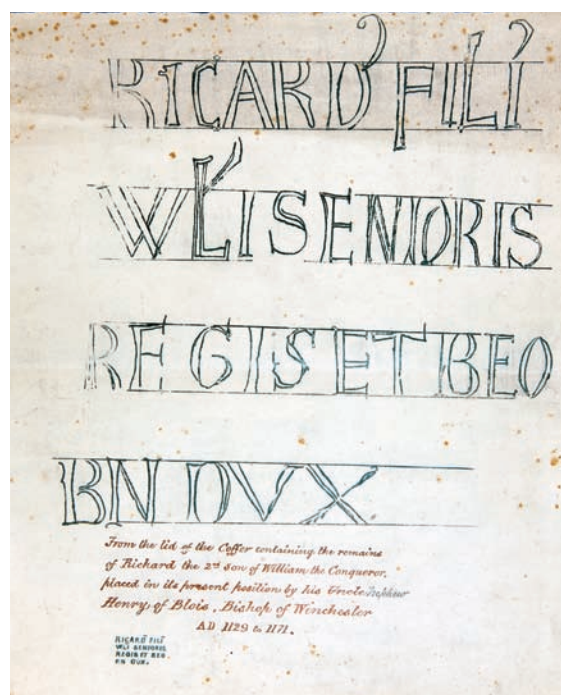 RICARD' FILI'
WL'I SENIORIS
REGIS ET BEO
BN DUX.
From the lid of the Coffer containing the remains
of Richard the 2nd son of William the Conqueror,
placed in its present position by his Uncle nephew
Henry, of Blois, Bishop of Winchester
AD 1129 to 1171.
RICARD' FILI'
WLI SENIORIS
REGIS ET BEO.
RN DUX.